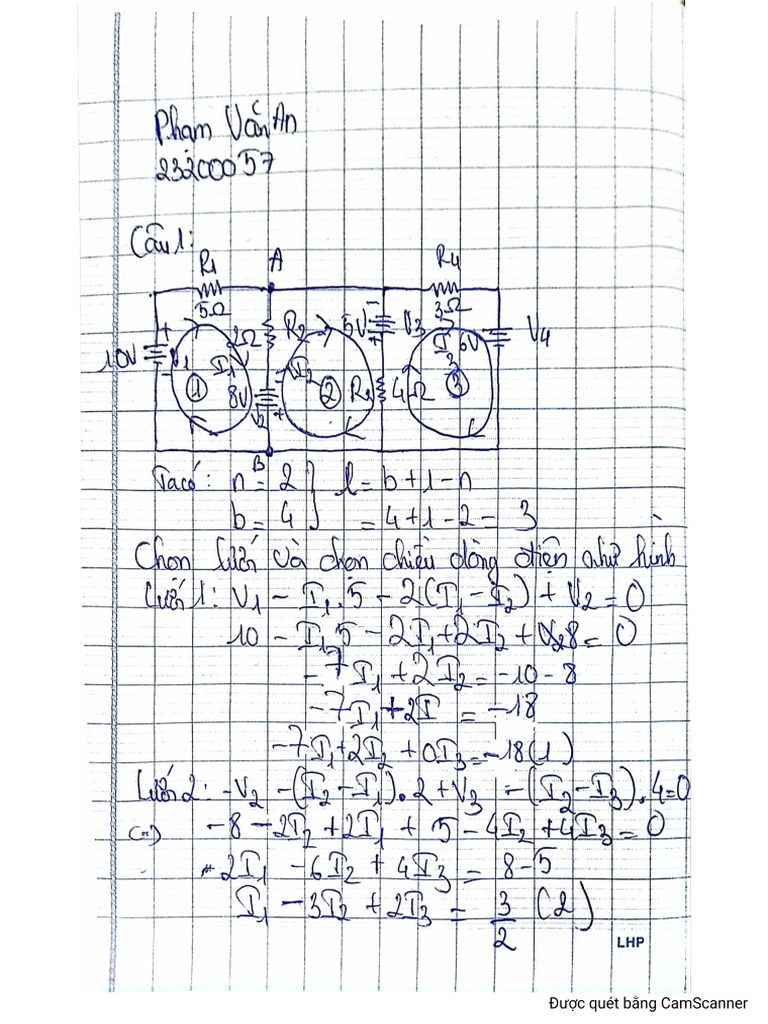 Phạm Văn An
23200057
Câu 1:
R₁ A R₄
5Ω 3Ω
10V + V₁ - 2Ω R₂ 5V - + V₃ I₃ 6V V₄
I₁ ① 8V - + V₂ I₂ ② R₃ 4Ω ③
B
Ta có: n = 2 } l = b + 1 - n
b = 4 } = 4 + 1 - 2 = 3
Chọn lưới và chọn chiều dòng điện như hình
Lưới 1: V₁ - I₁.5 - 2(I₁ - I₂) + V₂ = 0
10 - I₁5 - 2I₁ + 2I₂ + 8 = 0
-7I₁ + 2I₂ = -10 - 8
-7I₁ + 2I = -18
-7I₁ + 2I₂ + 0I₃ = -18 (1)
Lưới 2: -V₂ - (I₂ - I₁).2 + V₃ - (I₂ - I₃).4 = 0
(=) -8 - 2I₂ + 2I₁ + 5 - 4I₂ + 4I₃ = 0
2I₁ - 6I₂ + 4I₃ = 8 - 5
I₁ - 3I₂ + 2I₃ = 3/2 (2)
LHP
Được quét bằng CamScanner